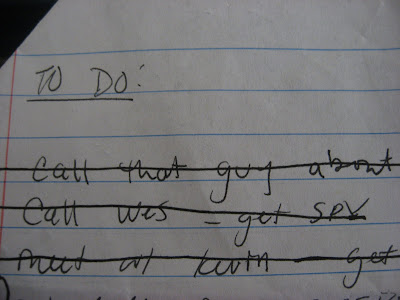 TO DO:
Call that guy about
Call Wes - get SPV
meet w/ Kevin get